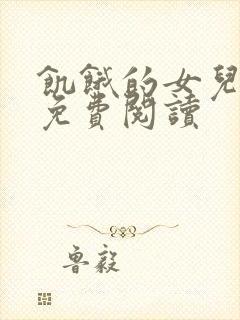 飢餓的女兒
免費閱讀
魯毅